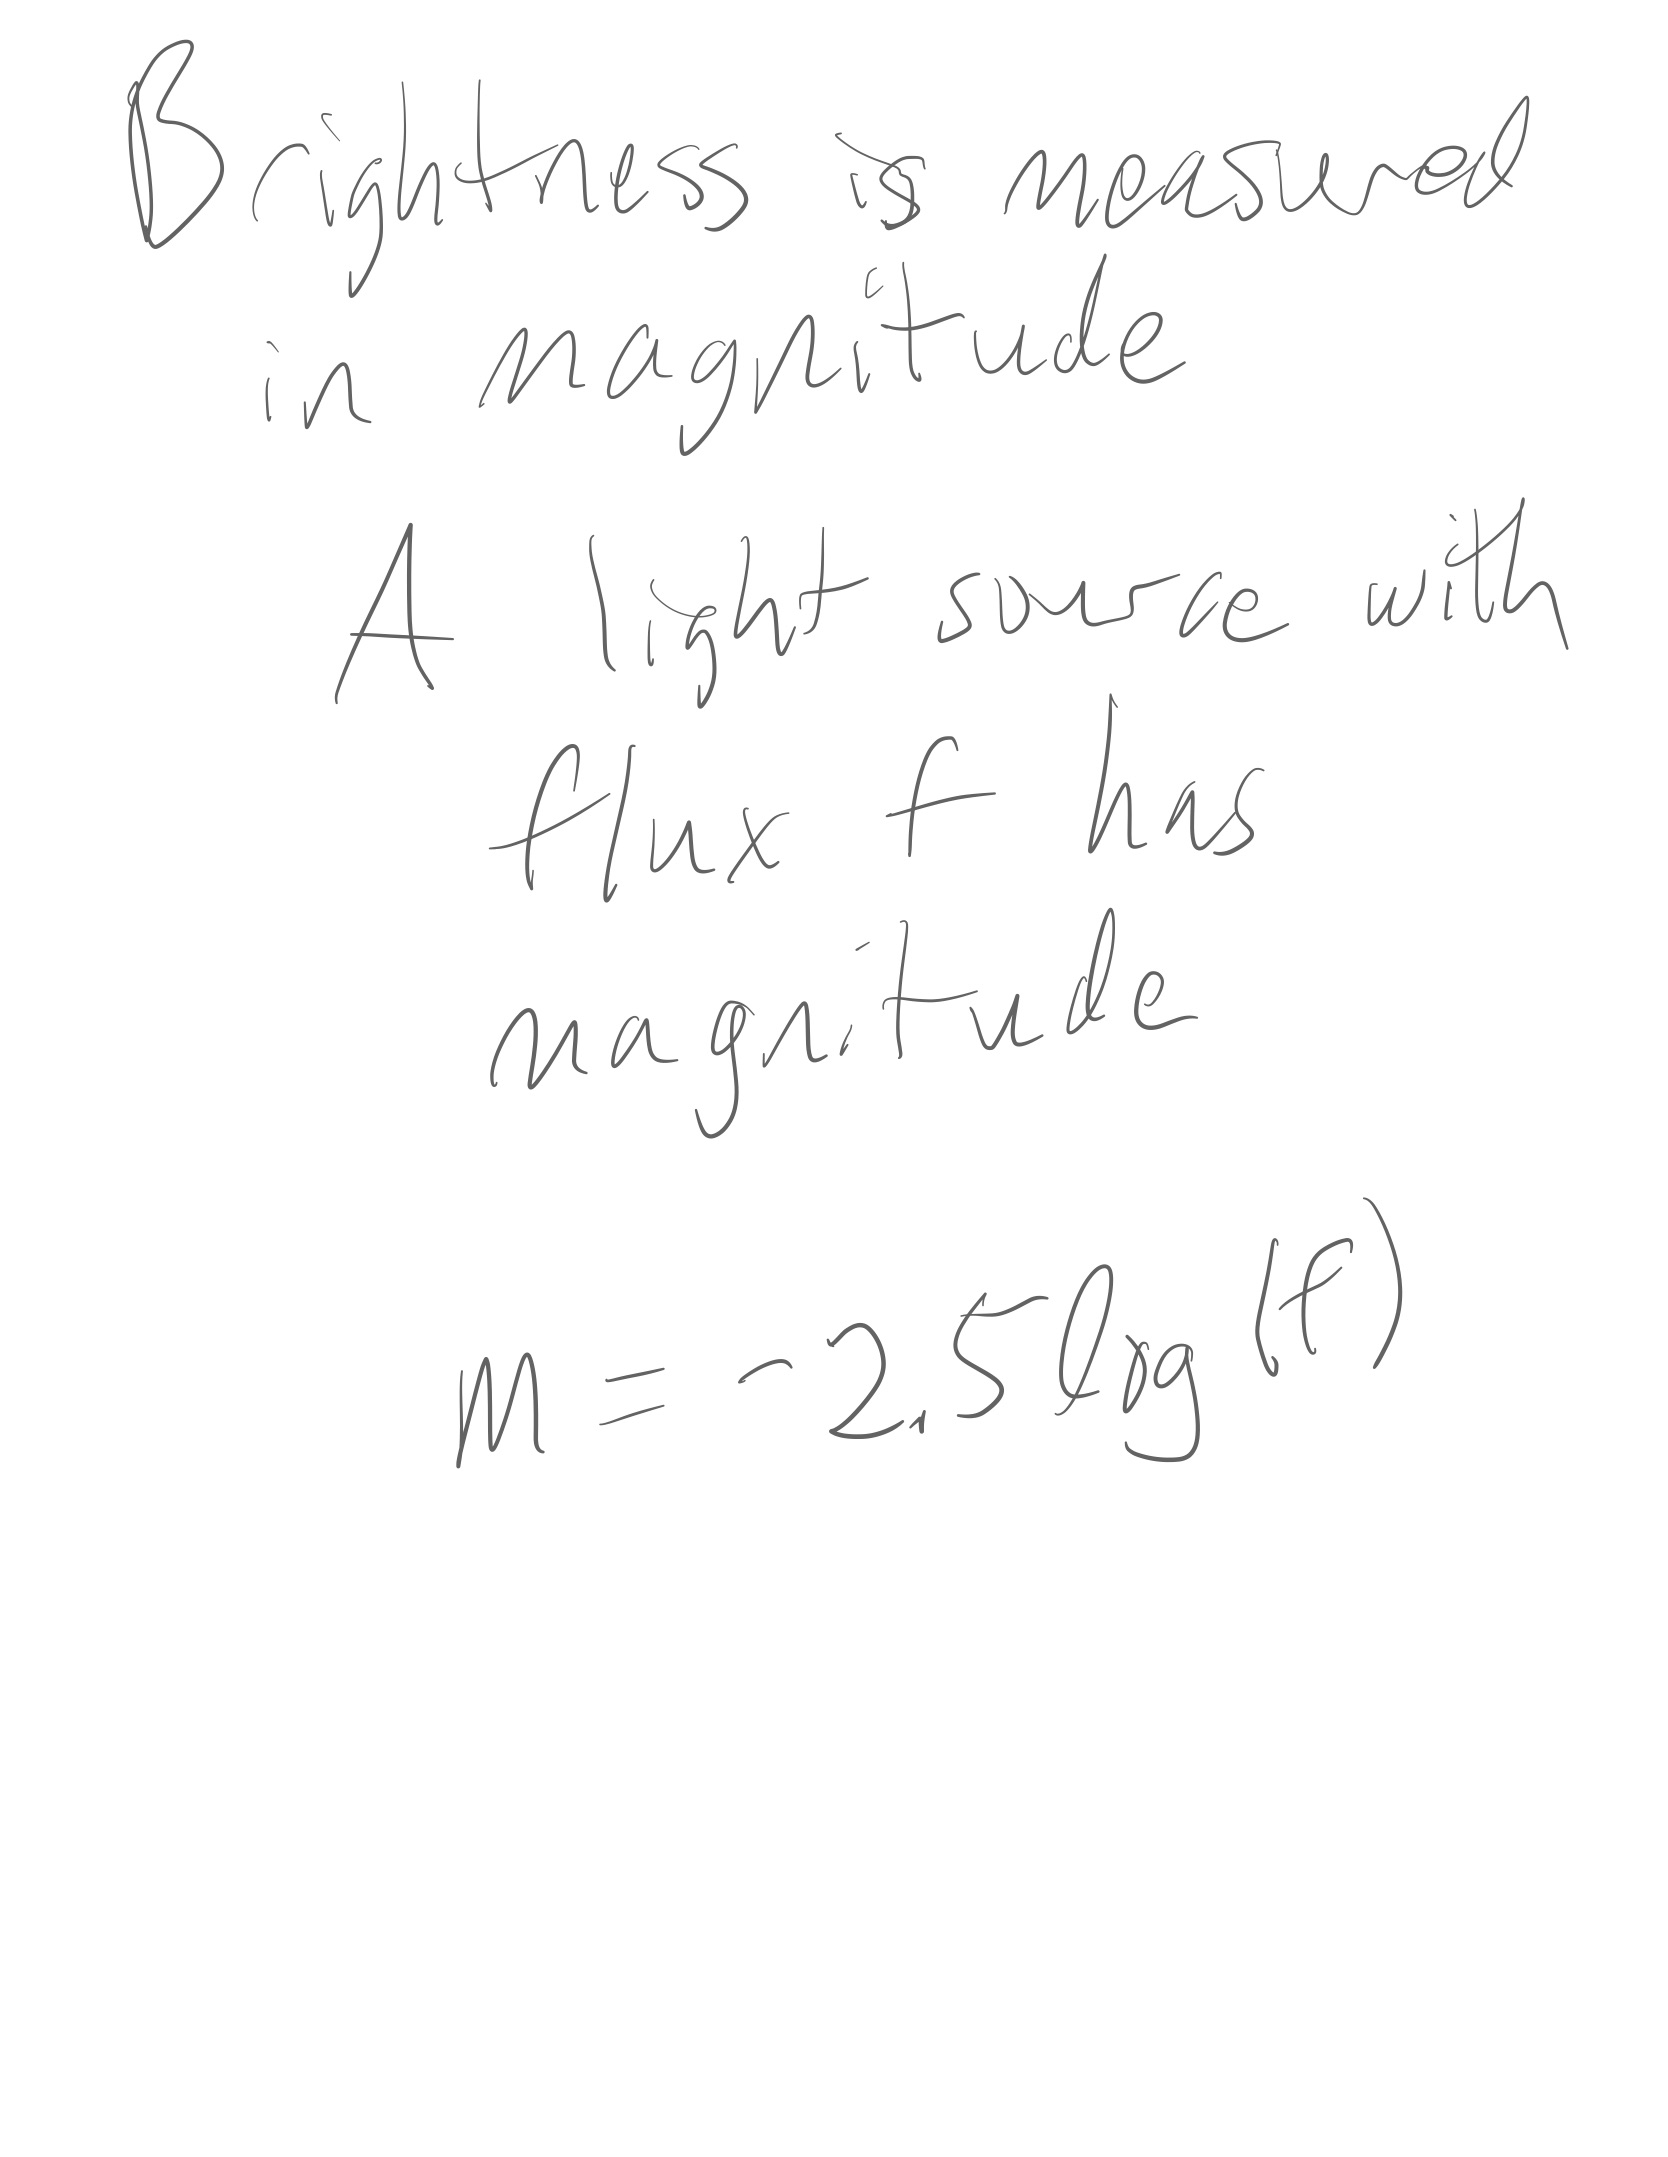 Brightness is measured
in magnitude
A light source with
flux f has
magnitude
m = -2.5 log (f)